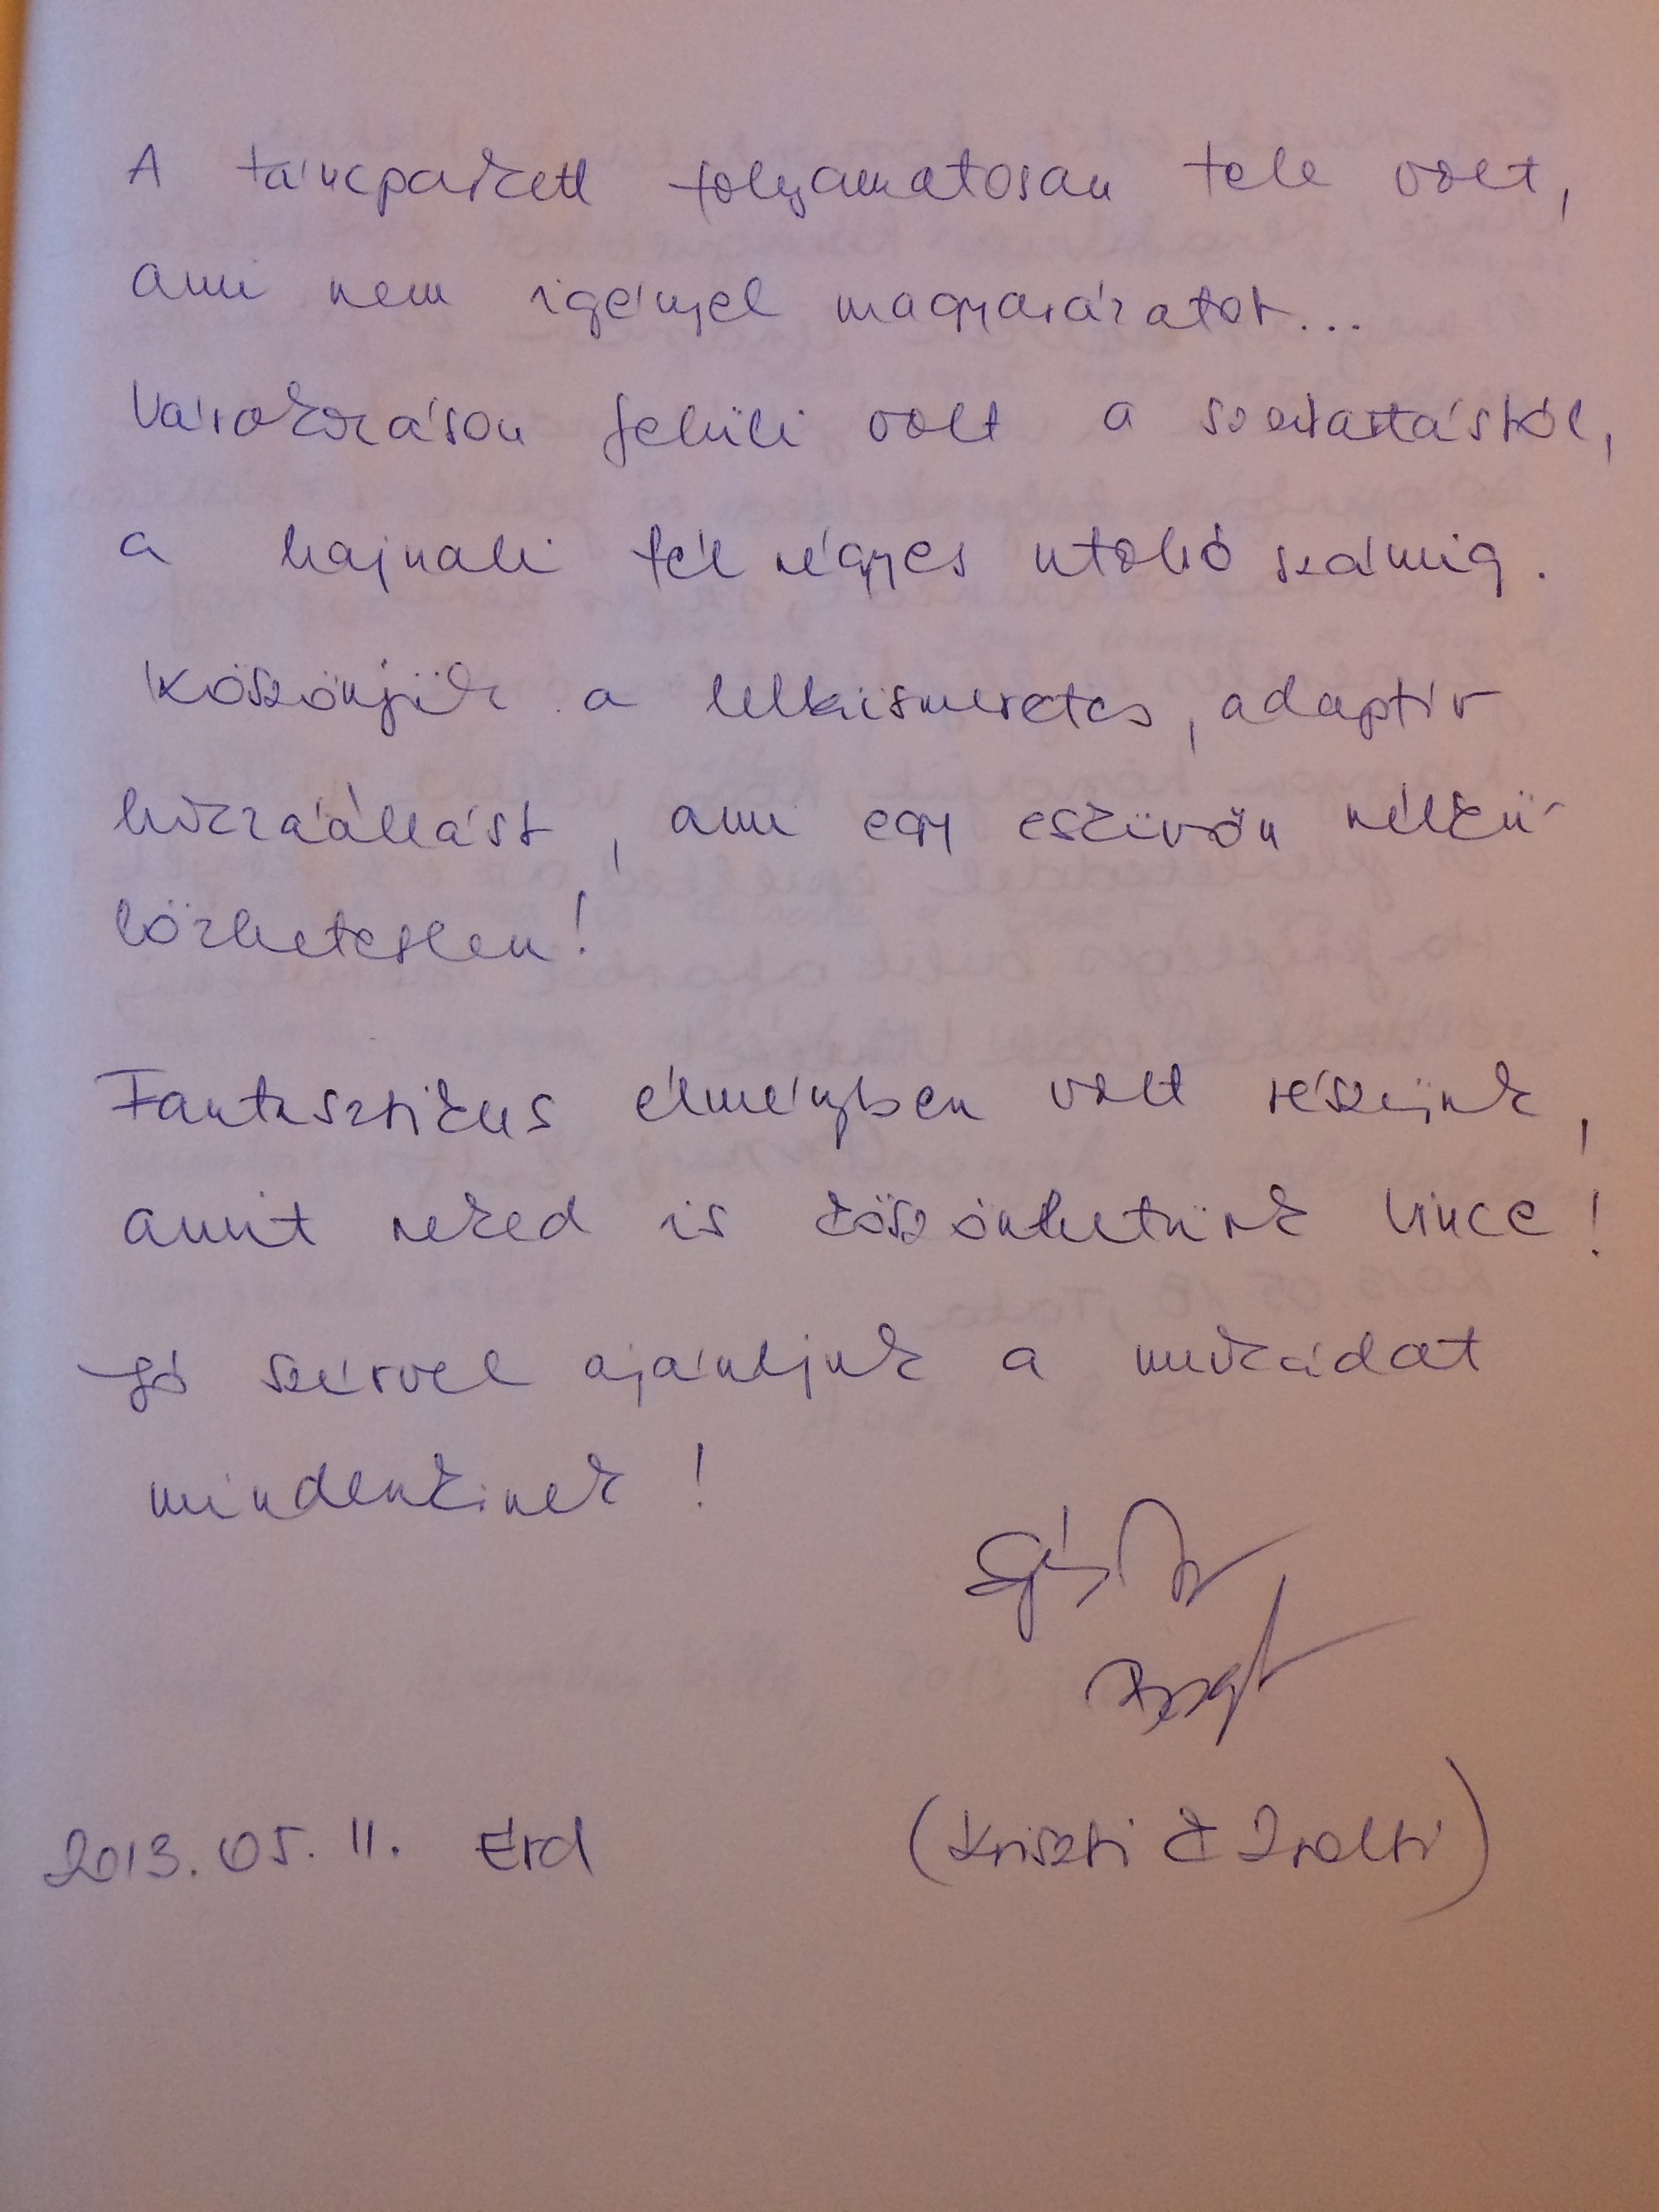 A táncparkett folyamatosan tele volt,
ami nem igényel magyarázatot...
Várakozáson felüli volt a szertartástól,
a hajnali fél négyes utolsó számig.
Köszönjük a lelkiismeretes, adaptív
hozzáállást, ami egy esküvőn nélkü-
lözhetetlen!
Fantasztikus élményben volt részünk,
amit neked is köszönhetünk Vince!
Jó szívvel ajánljuk a munkádat
mindenkinek!
2013. 05. 11. Érd (Kriszti & Zsolti)